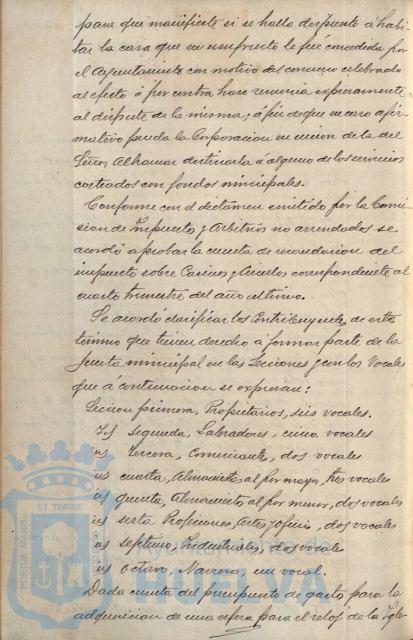 para que manifieste si se halla dispuesto á habi-
tar la casa que en usufructo le fué concedida por
el Ayuntamiento con motivo del concurso celebrado
al efecto ó por contra hace renuncia expresamente
al disfrute de la misma; á fin de que en caso afir-
mativo pueda la Corporacion en union de la del
Señor Alhamar destinarla á alguno de los servicios
costeados con fondos municipales.
Conforme con el dictámen emitido por la Comi-
sion de Impuestos y Arbitrios no arrendados se
acordó aprobar la cuenta de recaudacion del
impuesto sobre Casinos y Circulos correspondiente al
cuarto trimestre del año último.
Se acordó clasificar los Contribuyentes de este
término que tienen derecho á formar parte de la
Junta municipal en las Secciones y con los Vocales
que á continuacion se expresan:
Seccion primera, Propietarios, seis vocales.
Id segunda, Labradores, cinco vocales
id tercera, Comerciantes, dos vocales
id cuarta, Almacenistas al por mayor, tres vocales
id quinta, Almacenistas al por menor, dos vocales
id sesta Profesiones, Artes y oficios, dos vocales
id septima, Industriales, dos vocales
id Octava, Marina, un vocal.
Dada cuenta del presupuesto de gasto para la
adquisicion de una esfera para el reloj de la Igle-
PORTUS MARIS
ET TERRAE
Ayuntamiento de
HUELVA